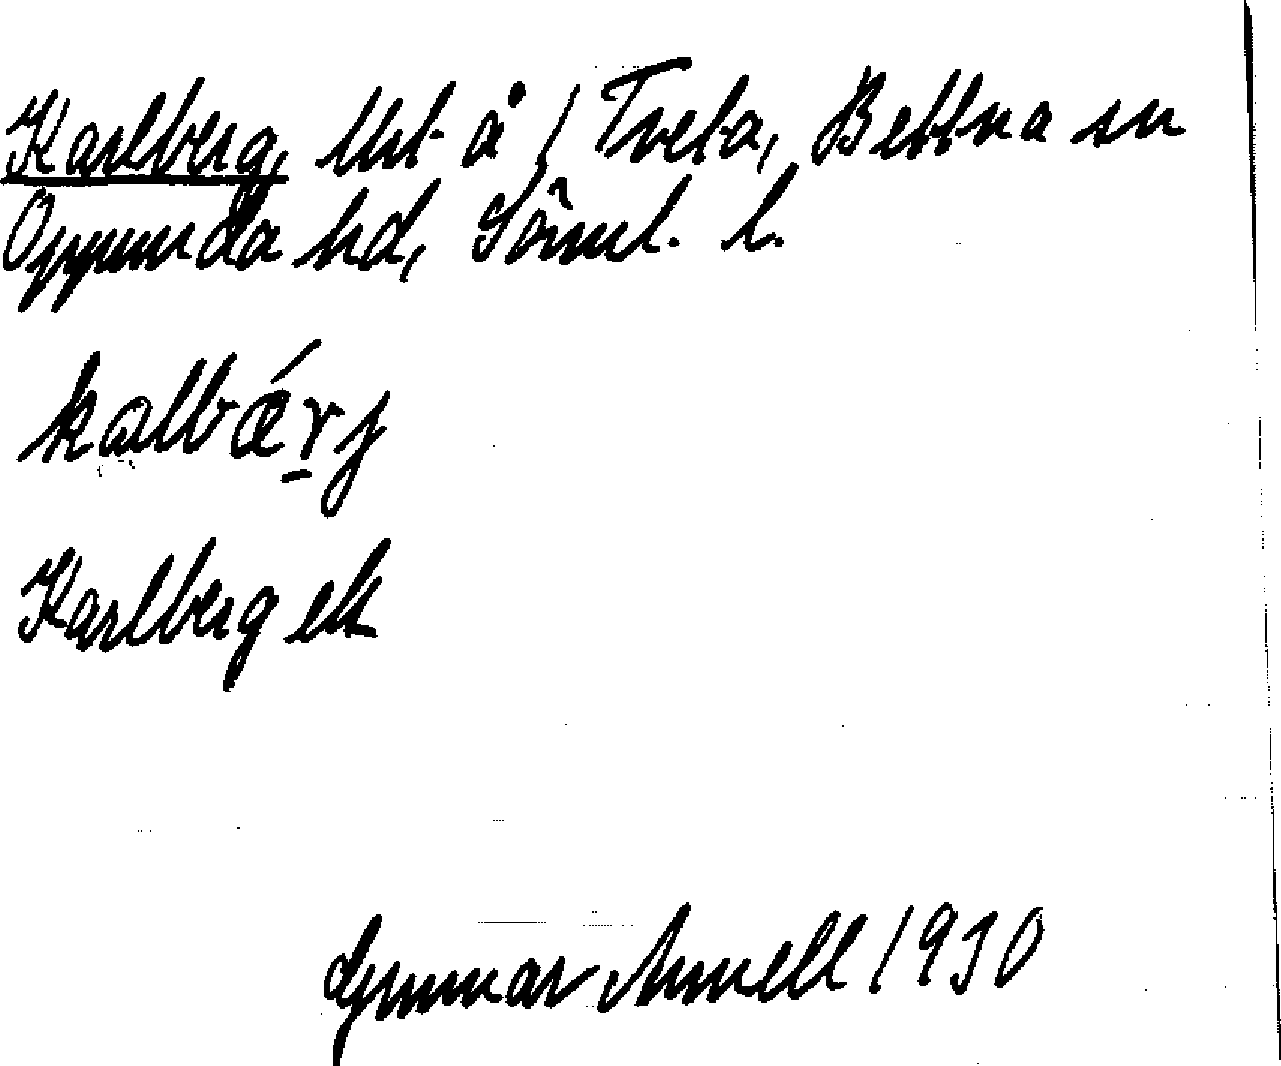 Karlberg, lht å 1 Tveta, Bettna sn
Oppunda hd, Söml. l.
kalbærj
Karlberg ek
Gunnar Arnell 1930